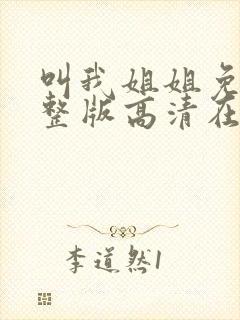 叫我姐姐免
整版高清在
李道然1